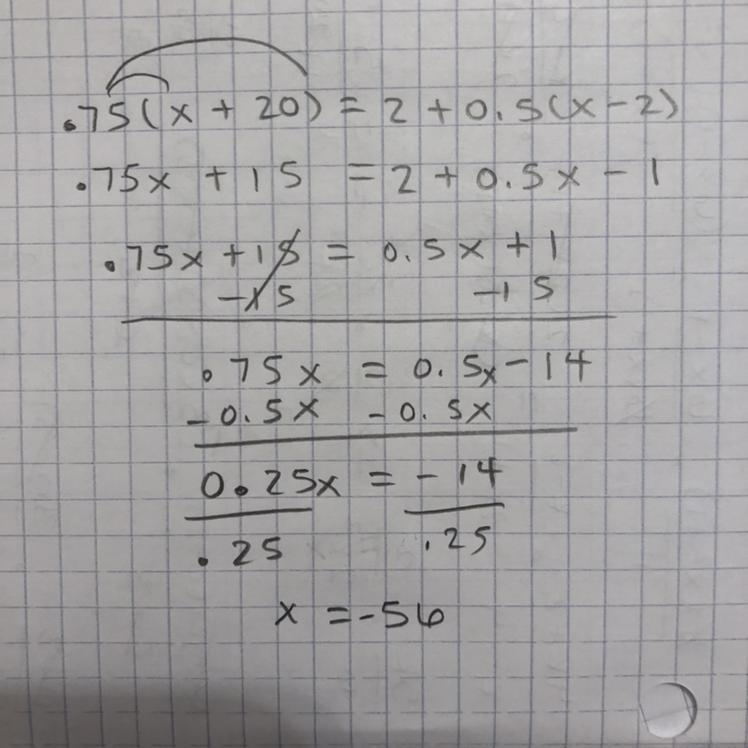 .75(x + 20) = 2 + 0.5(x - 2)
.75x + 15 = 2 + 0.5x - 1
.75x + 15 = 0.5x + 1
-15 -15
.75x = 0.5x - 14
-0.5x -0.5x
0.25x = -14
.25 .25
x = -56